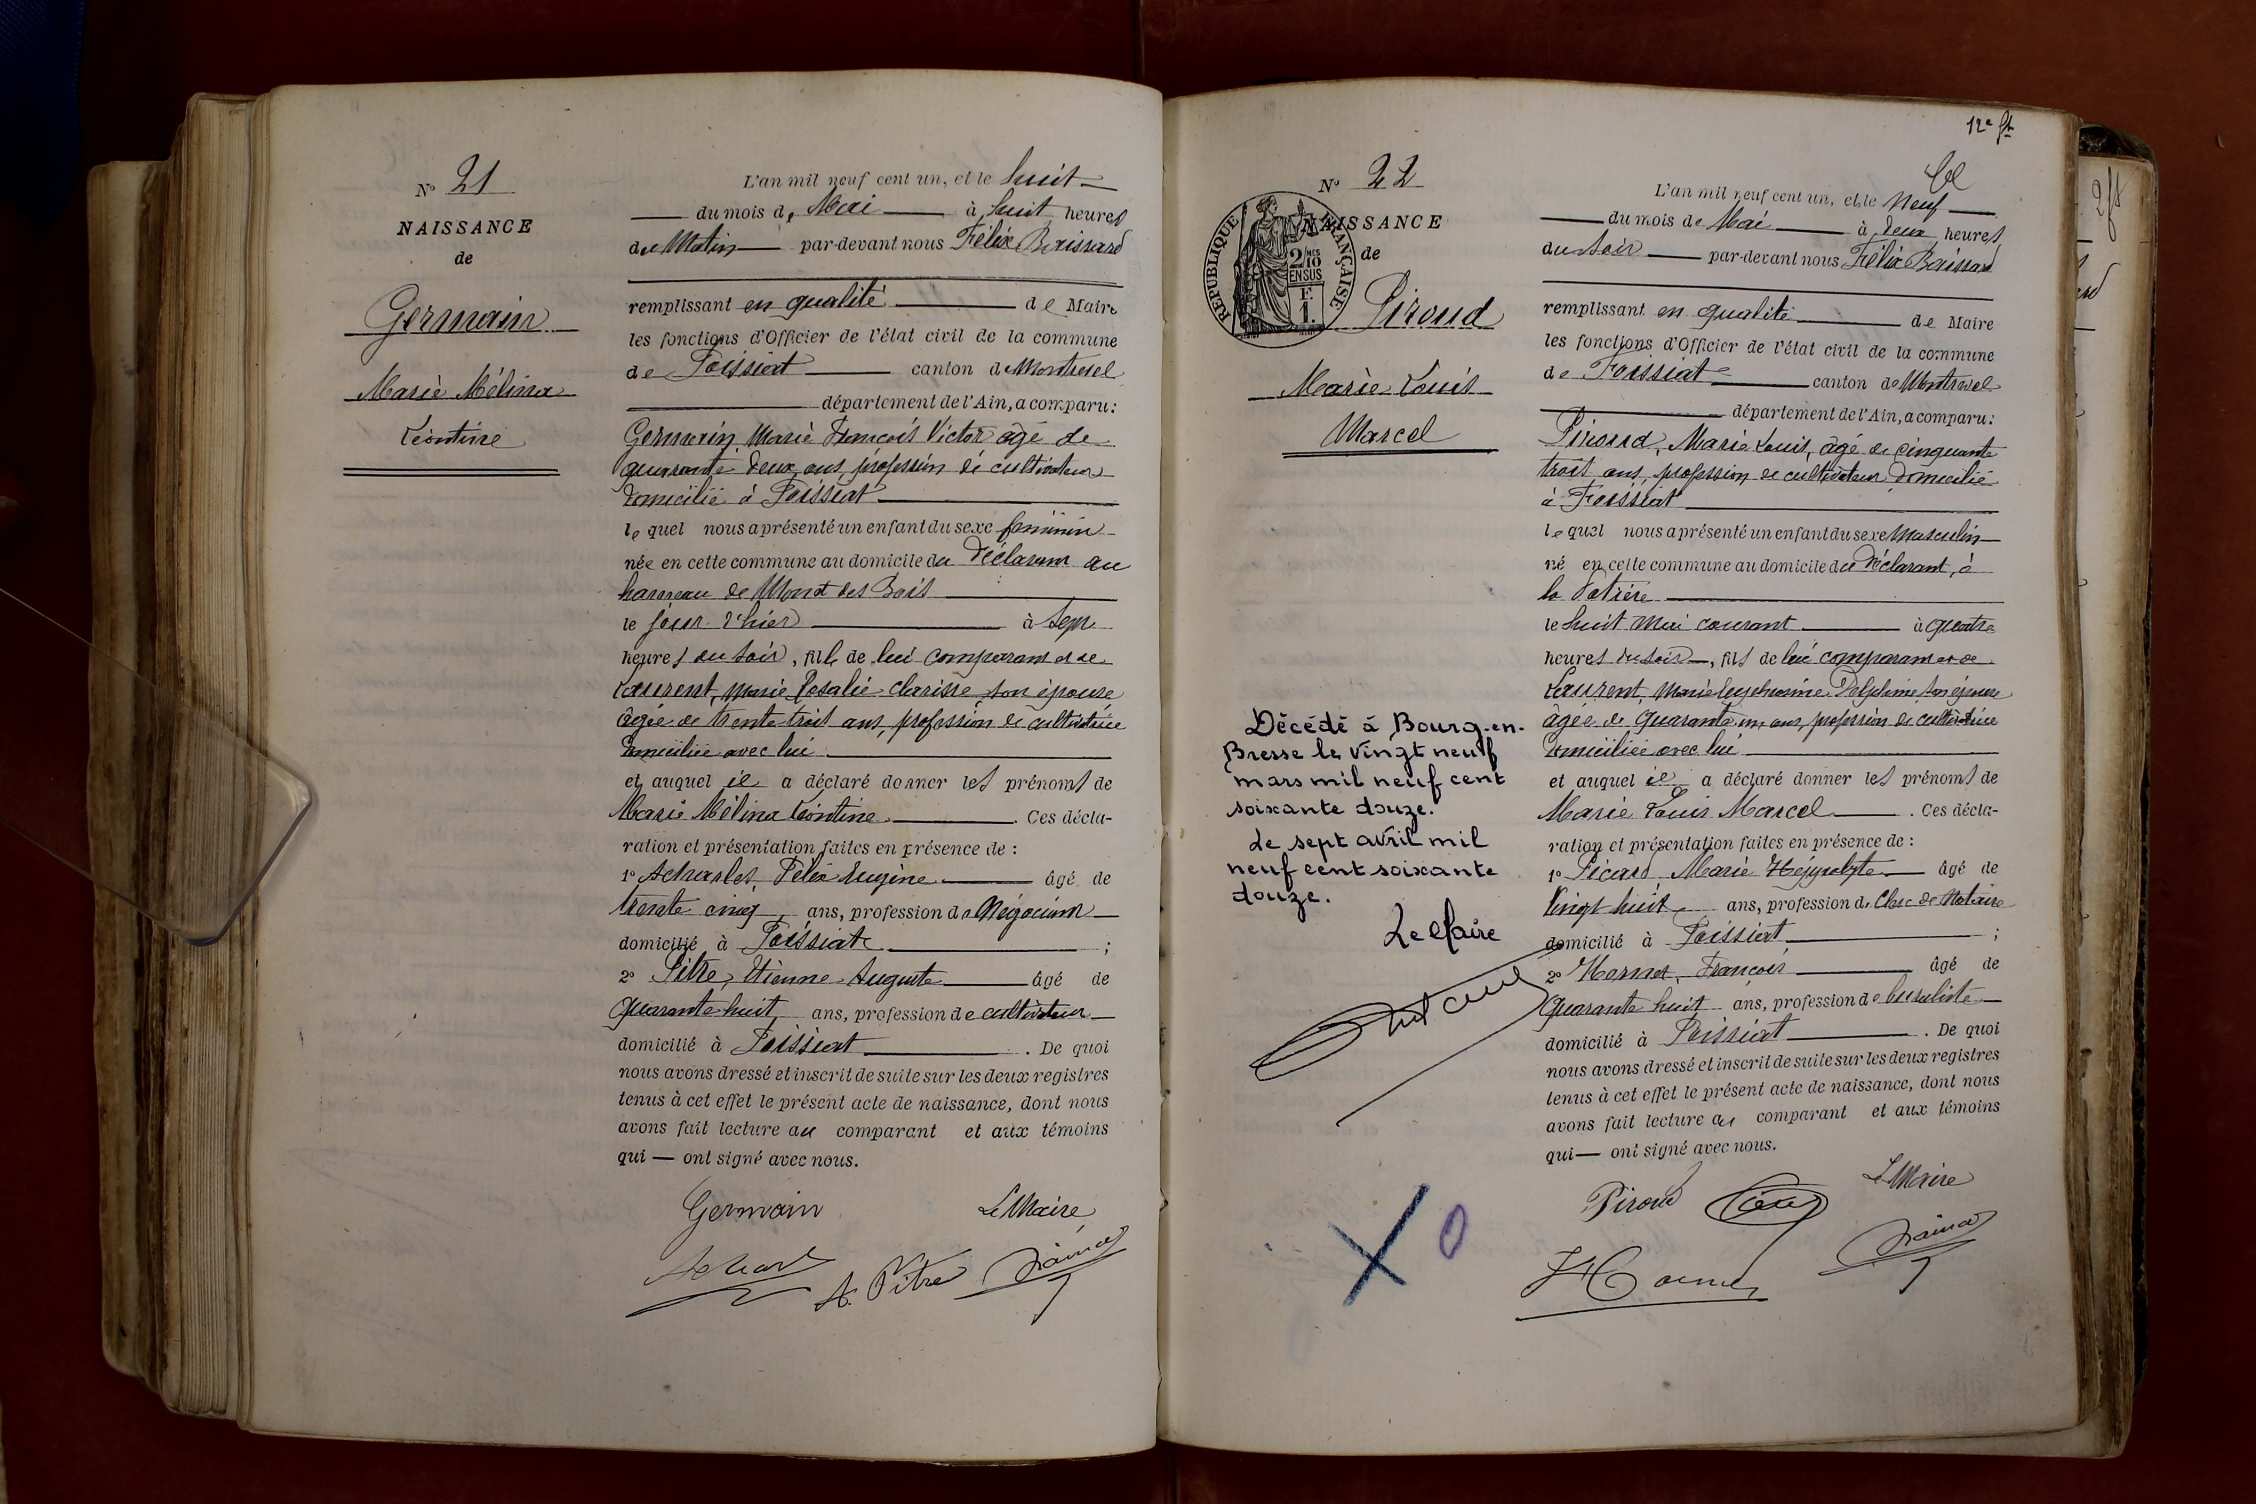 N° 21
NAISSANCE
de
Germain
Marie Mélina
Léontine
L'an mil neuf cent un, et le huit
du mois de Mai à huit heures
du Matin par-devant nous Félix
remplissant en qualité de Maire
les fonctions d'Officier de l'état civil de la commune
de Foissiat canton de Montrevel
département de l'Ain, a comparu :
Germain, Marie François Victor âgé de
quarante deux ans, profession de cultivateur
domicilié à Foissiat
lequel nous a présenté un enfant du sexe féminin
née en cette commune au domicile du déclarant au
hameau de Mont des Bois
le jour d'hier à sept
heures du soir, fille de lui comparant et de
Laurent, Marie Rosalie Clarisse son épouse
âgée de trente trois ans, profession de cultivatrice
domiciliée avec lui
et auquel il a déclaré donner les prénoms de
Marie Mélina Léontine. Ces décla-
ration et présentation faites en présence de :
1° Félix Eugène âgé de
trente cinq ans, profession de Négociant
domicilié à Foissiat ;
2° Pitre, Etienne Auguste âgé de
quarante huit ans, profession de cultivateur
domicilié à Foissiat. De quoi
nous avons dressé et inscrit de suite sur les deux registres
tenus à cet effet le présent acte de naissance, dont nous
avons fait lecture au comparant et aux témoins
qui — ont signé avec nous.
Germain Le Maire
A. Pitre
12e ft
N° 22
NAISSANCE
de
REPUBLIQUE FRANÇAISE
2/10
EN SUS
F.
1.
Piroud
Marie Louis
Marcel
L'an mil neuf cent un, et le neuf
du mois de Mai à deux heures
du soir par-devant nous Félix
remplissant en qualité de Maire
les fonctions d'Officier de l'état civil de la commune
de Foissiat canton de Montrevel
département de l'Ain, a comparu :
Piroud, Marie Louis, âgé de cinquante
trois ans, profession de cultivateur domicilié
à Foissiat
lequel nous a présenté un enfant du sexe masculin
né en cette commune au domicile du déclarant, à
la
le huit Mai courant à quatre
heures du soir, fils de lui comparant et de
Laurent, Marie Delphine son épouse
âgée de quarante un ans, profession de cultivatrice
domiciliée avec lui
et auquel il a déclaré donner les prénoms de
Marie Louis Marcel. Ces décla-
ration et présentation faites en présence de :
1° Picard Marie Hippolyte âgé de
vingt huit ans, profession de Clerc de Notaire
domicilié à Foissiat ;
2° François âgé de
quarante huit ans, profession de buraliste
domicilié à Foissiat. De quoi
nous avons dressé et inscrit de suite sur les deux registres
tenus à cet effet le présent acte de naissance, dont nous
avons fait lecture au comparant et aux témoins
qui — ont signé avec nous.
Piroud Le Maire
Décédé à Bourg-en-
Bresse le vingt neuf
mars mil neuf cent
soixante douze.
Le sept avril mil
neuf cent soixante
douze.
Le Maire